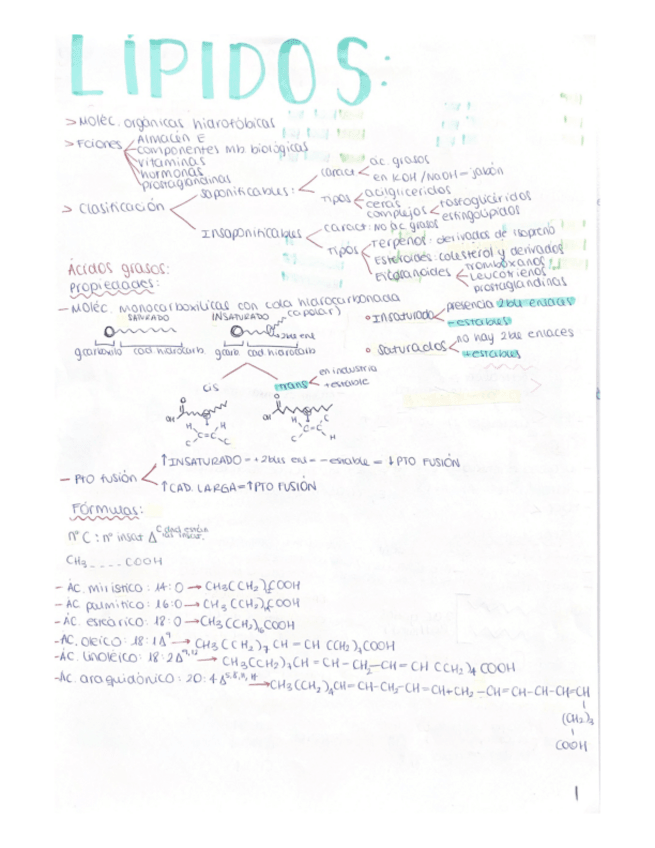 LÍPIDOS:
> Moléc. orgánicas hidrofóbicas
> Fciones
Almacén E
componentes Mb. biológicas
vitaminas
hormonas
prostaglandinas
> Clasificación
saponificables:
caract
ac. grasos
en KOH/NaOH → jabón
Tipos
acilgliceridos
ceras
complejos
fosfoglicéridos
esfingolípidos
Insaponificables
caract: no ac grasos
Tipos
Terpenos: derivados de isopreno
Esteroides: colesterol y derivados
Eicosanoides
Tromboxanos
Leucotrienos
prostaglandinas
Ácidos grasos:
Propiedades:
- Moléc. monocarboxílicas con cola hidrocarbonada
SATURADO
INSATURADO
(apolar)
2ble enl
carboxilo cad hidrocarb.
carb. cad hidrocarb
• Insaturado
presencia 2ble enlaces
- estables
• Saturados
no hay 2ble enlaces
+ estables
cis
trans
en industria
+ estable
OH O
H H
C=C
C C
OH O
H C
C=C
C H
- PTO fusión
↑ INSATURADO - +2bles enl - - estable = ↓ PTO FUSIÓN
↑ CAD. LARGA = ↑ PTO FUSIÓN
Fórmulas:
nº C : nº insat Δ
CH3 _ _ _ _ COOH
- ÁC. mirístico: 14:0 → CH3(CH2) COOH
- ÁC palmítico: 16:0 → CH3(CH2) COOH
- ÁC. esteárico: 18:0 → CH3(CH2)16COOH
- ÁC. oleico: 18:1Δ9 → CH3(CH2)7 CH = CH (CH2)7COOH
- ÁC. linoléico: 18:2Δ9,12 → CH3(CH2)4CH = CH - CH2 - CH = CH (CH2)7 COOH
- ÁC. araquidónico: 20:4Δ5,8,11,14 → CH3(CH2)4CH=CH-CH2-CH=CH-CH2-CH=CH-CH-CH=CH
(CH2)3
COOH
1